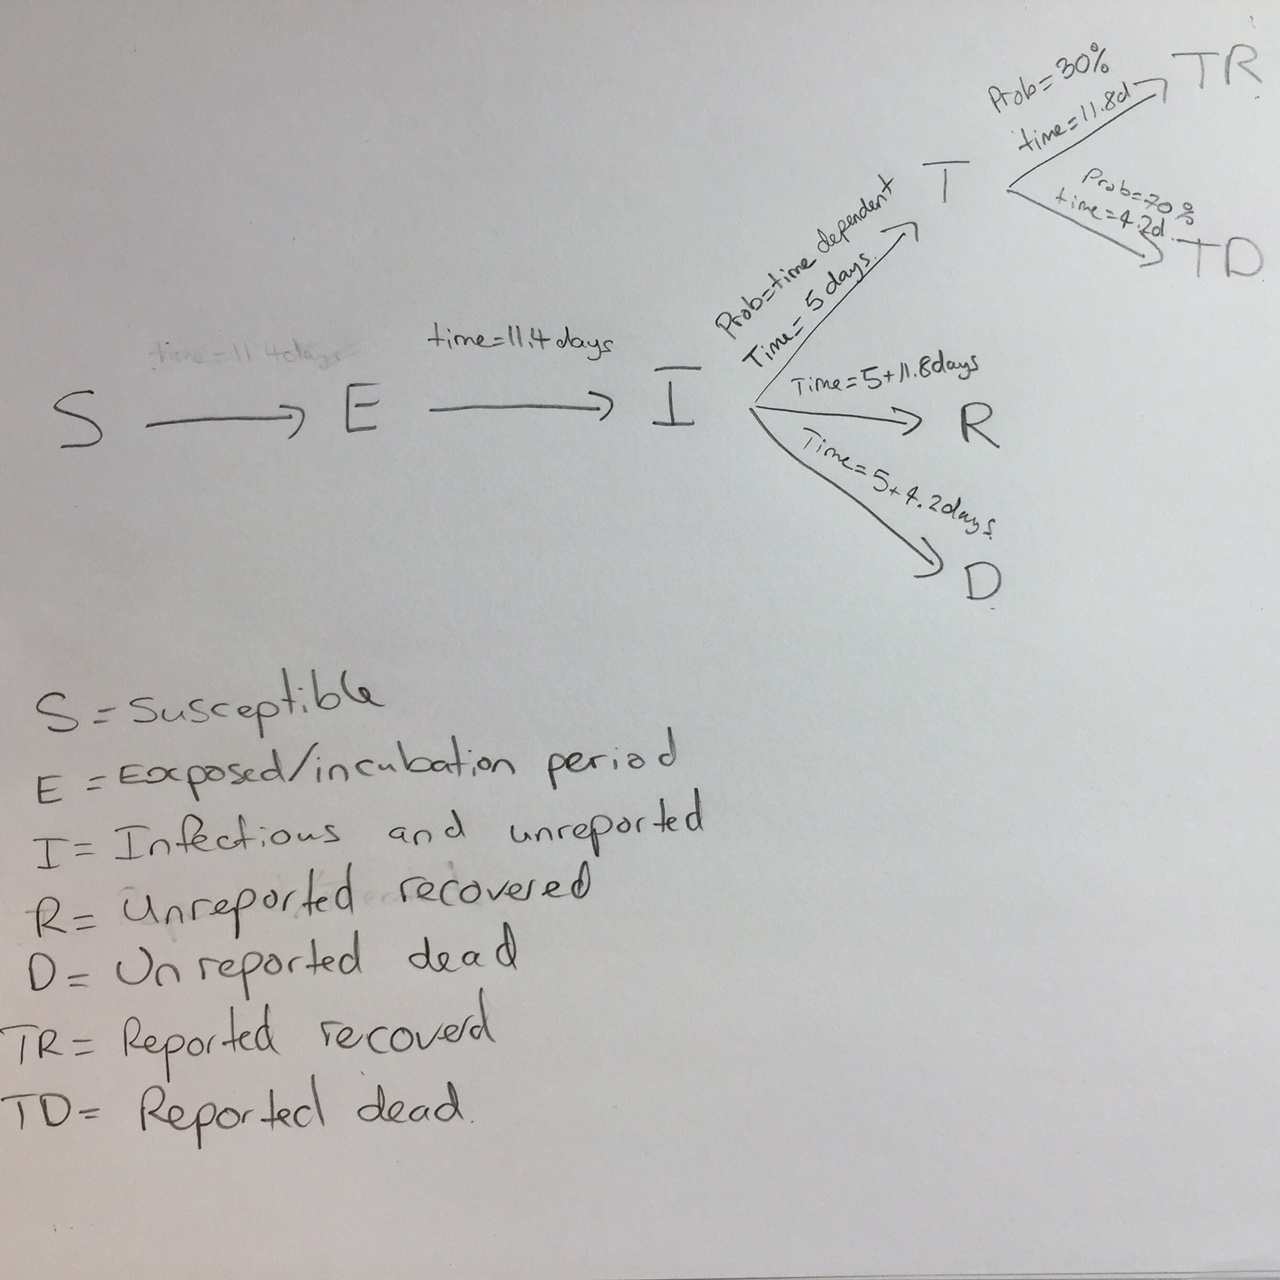 Prob=30%
time=11.8d
TR
Prob=70%
time=4.2d.
TD
T
Prob=time dependent
Time=5 days.
time=11.4days
time=11.4 days
S
E
I
Time=5+11.8days
R
Time=5+4.2days.
D
S=Susceptible
E=Exposed/incubation period
I=Infectious and unreported
R=Unreported recovered
D=Unreported dead
TR=Reported recoverd
TD=Reported dead.